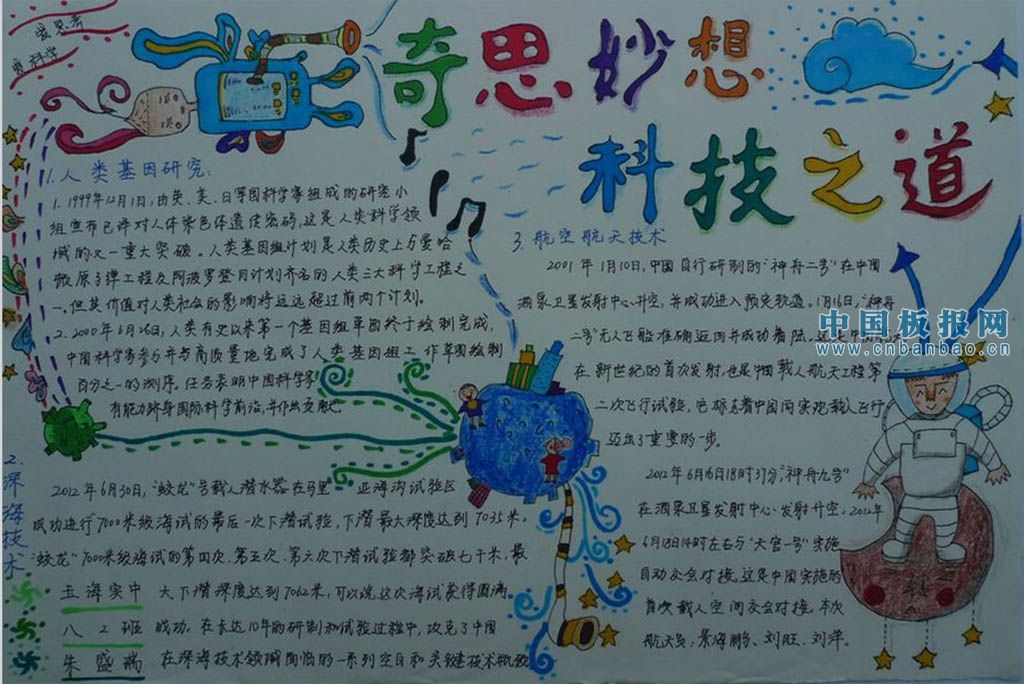 爱思考
爱科学
奇思妙想
科技之道
1.人类基因研究:
1.1999年12月1日,由英、美、日等国科学家组成的研究小
组宣布已译对人体染色体遗传密码,这是人类科学领
域的又一重大突破。人类基因组计划是人类历史上与曼哈
顿原子弹工程及阿波罗登月计划齐名的人类三大科学工程之
一,但其价值对人类社会的影响将远远超过前两个计划。
2.2000年6月26日,人类有史以来第一个基因组草图终于绘制完成,
中国科学家参与并与高质量地完成了人类基因组工作草图绘制
百分之一的测序。任务表明中国科学家
有能力跻身国际科学前沿,并作出贡献
2.深海技术
2012年6月30日,"蛟龙"号载人潜水器在马里亚海沟试验区
成功进行7000米级海试的最后一次下潜试验,下潜最大深度达到7035米,
"蛟龙"7000米级海试的第四次、第五次、第六次下潜试验都突破七千米,最
大下潜深度达到7062米,可以说,这次海试获得圆满
成功。在长达10年的研制和试验过程中,攻克了中国
在深海技术领域面临的一系列空白和关键技术瓶颈
五海实中
八2班
朱盛瑞
3.航空航天技术
2001年1月10日,中国自行研制的"神舟二号"在中国
酒泉卫星发射中心升空,并成功进入预定轨道。1月16日,"神舟
二号"无人飞船准确返回并成功着陆,这是中国航天
在新世纪的首次发射,也是中国载人航天工程第
二次飞行试验,它标志着中国向实现载人飞行
迈出了重要的一步。
2012年6月16日18时37分,"神舟九号"
在酒泉卫星发射中心发射升空,2012年
6月18日14时左右与"天宫一号"实施
自动交会对接,这是中国实施的
首次载人空间交会对接。本次
航天员:景海鹏、刘旺、刘洋。
中国板报网
www.cnbanbao.cn